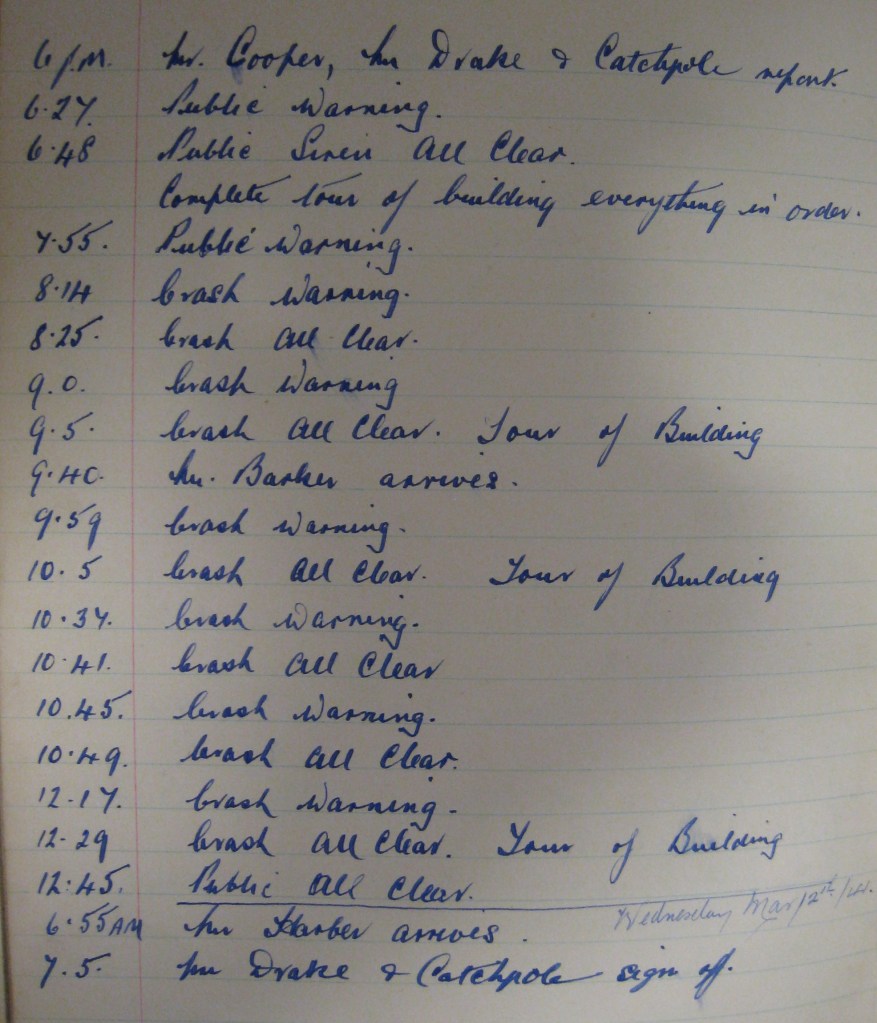 6 p.m. Mr. Cooper, Mr Drake & Catchpole report.
6.27. Public Warning.
6.48 Public Siren All Clear.
Complete tour of building everything in order.
7.55. Public Warning.
8.14 Crash Warning.
8.25. Crash All Clear.
9.0. Crash Warning
9.5. Crash All Clear. Tour of Building
9.40. Mr. Barker arrives.
9.59 Crash Warning.
10.5 Crash All Clear. Tour of Building
10.37. Crash Warning.
10.41. Crash All Clear
10.45. Crash Warning.
10.49. Crash All Clear.
12.17. Crash Warning.
12.29 Crash All Clear. Tour of Building
12.45. Public All Clear.
Wednesday Mar 12th/41.
6.55 AM Mr Harber arrives.
7.5. Mr Drake & Catchpole sign off.